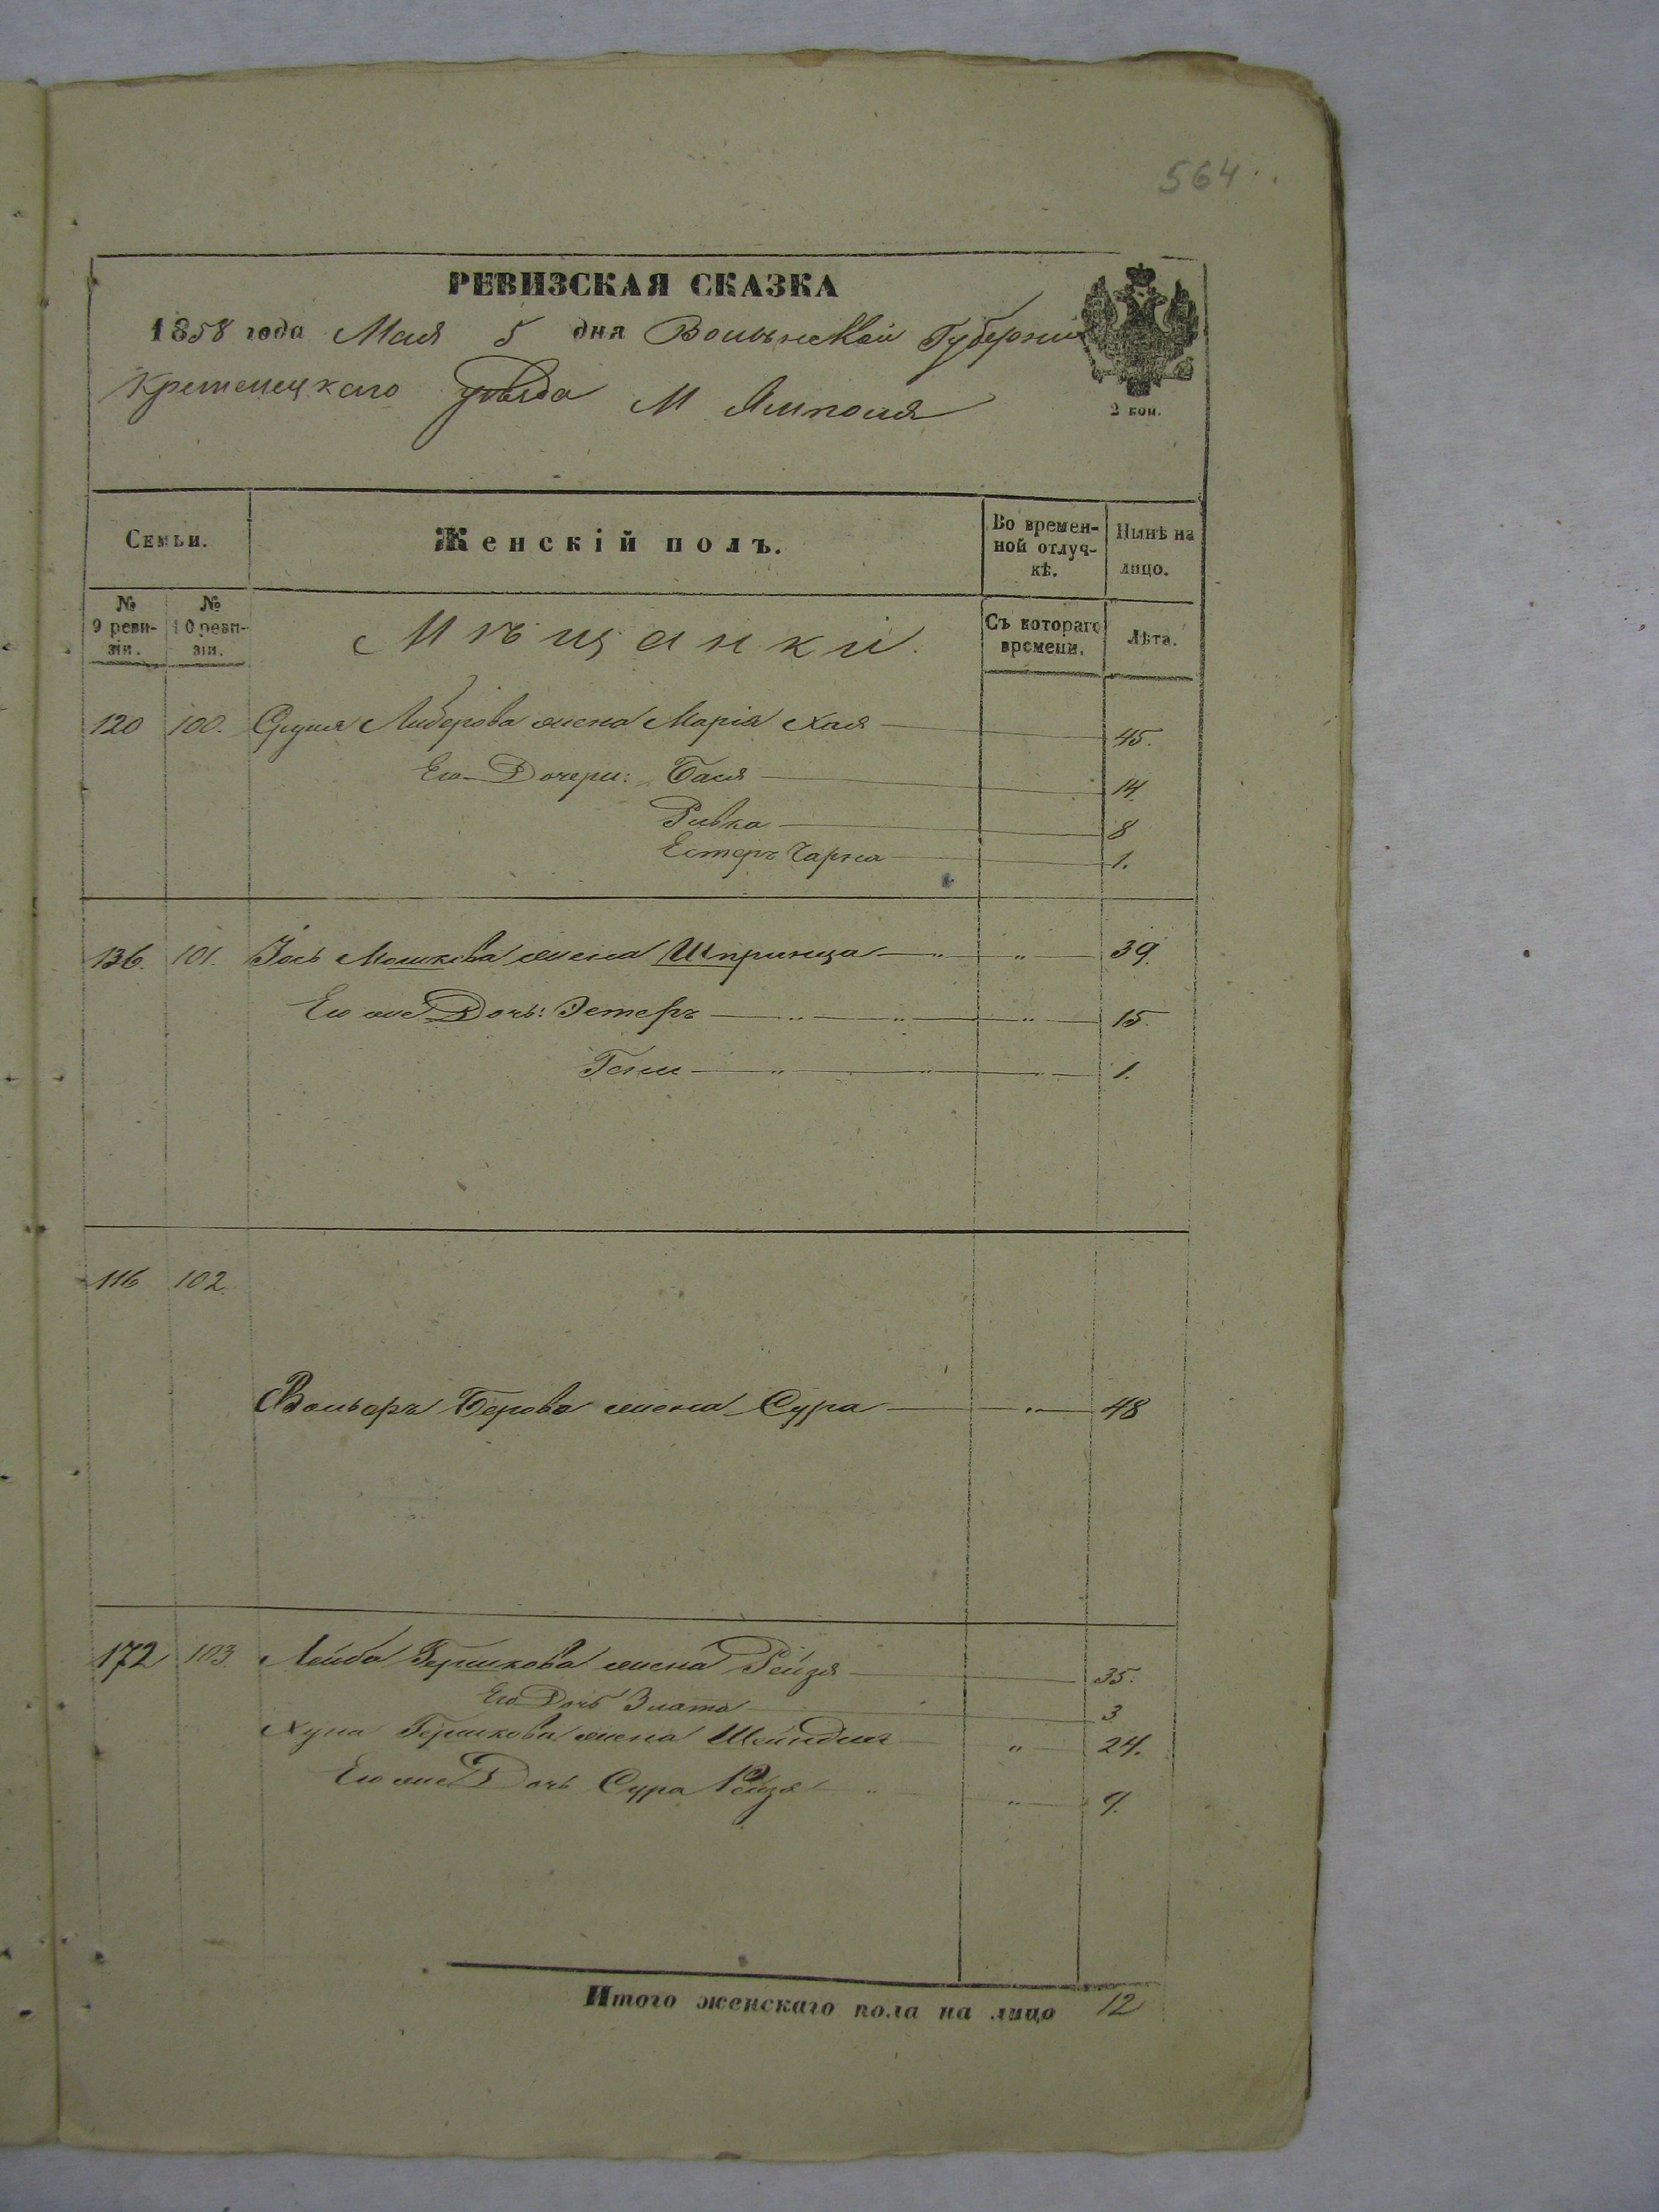 564
РЕВИЗСКАЯ СКАЗКА
1858 года Мая 5 дня Волынской Губерніи
Кременецкаго уѣзда М Ямполя
2 коп.
Семьи.
Женскій полъ.
Во временной отлучкѣ.
Нынѣ на лицо.
№ 9 ревизіи.
№ 10 ревизіи.
Мѣщанки.
Съ котораго времени.
Лѣта.
120 100. Сруля Либерова жена Марія Хая 45.
Его Дочери: Бася 14
Ривка 8
Естеръ Чарна 1.
136. 101. Іось Мошкова жена Шпринца " 39.
Его же Дочь: Эстеръ " 15.
Геня " 1.
116 102.
Вольфъ Берова жена Сура " 48
172 103. Лейба Гершкова жена Рейзя 35.
Его Дочь Злата 3
Хуна Гершкова жена Шейндля " 24.
Его же Дочь Сура Рейзя " 9.
Итого женскаго пола на лицо 12